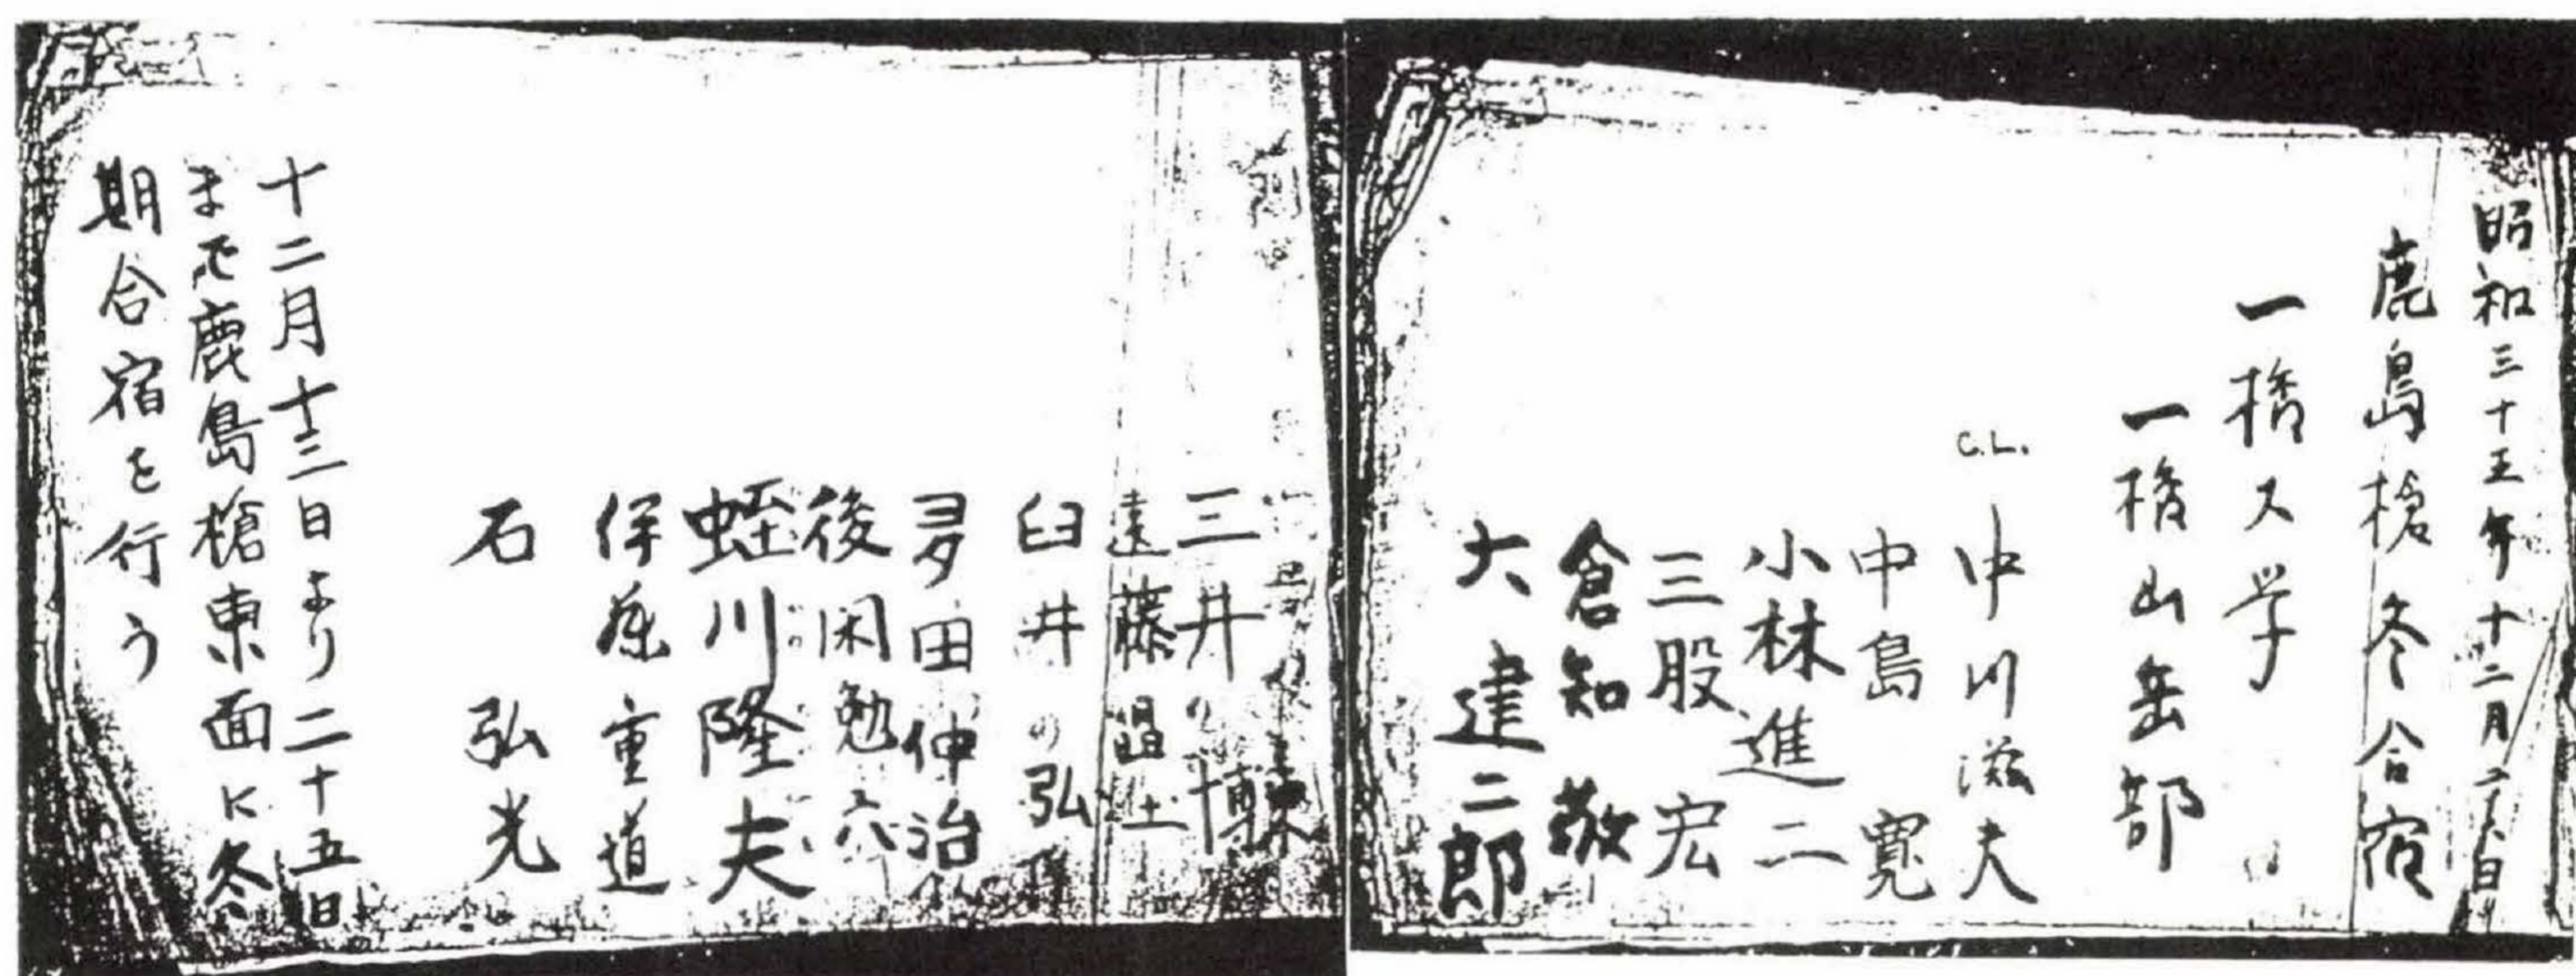 昭和三十五年十二月二十六日
鹿島槍冬合宿
一橋大学
一橋山岳部
C.L. 中川滋夫
中島 寛
小林進二
三股 宏
倉知 敬
大 建二郎
三井 博
遠藤晶土
臼井 弘
多田伸治
後閑勉
蛭川隆夫
伊藤重道
石 弘光
十二月十三日より二十五日
まで鹿島槍東面に冬
期合宿を行う